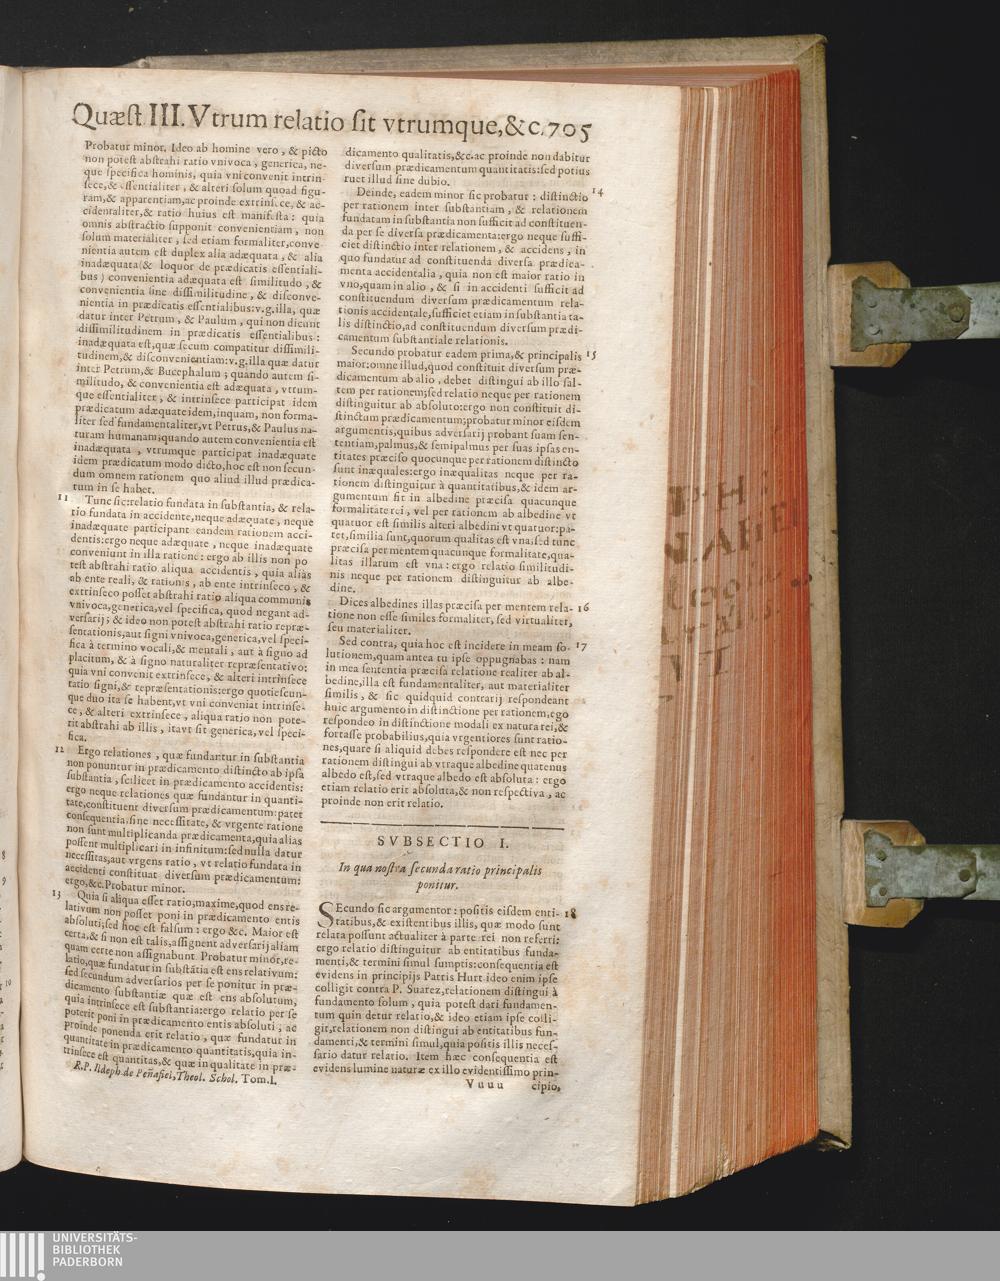 Quæst. III. Vtrum relatio sit vtrumque,&c. 705
Probatur minor. Ideo ab homine vero, & picto
non potest abstrahi ratio vnivoca, generica, ne-
que specifica hominis, quia vni convenit intrin-
sece,& essentialiter, & alteri solum quoad figu-
ram,& apparentiam,ac proinde extrinsece, & ac-
cidentaliter,& ratio huius est manifesta: quia
omnis abstractio supponit convenientiam, non
solum materialiter, sed etiam formaliter,conve
nientia autem est duplex alia adæquata, & alia
inadæquata(& loquor de prædicatis essentiali-
bus) convenientia adæquata est similitudo, &
convenientia sine dissimilitudine, & disconve-
nientia in prædicatis essentialibus:v.g.illa, quæ
datur inter Petrum, & Paulum, qui non dicunt
dissimilitudinem in prædicatis essentialibus:
inadæquata est,quæ secum compatitur dissimili-
tudinem,& disconvenientiam:v.g.illa quæ datur
inter Petrum,& Bucephalum; quando autem si-
militudo, & convenientia est adæquata, vtrum-
que essentialiter, & intrinsece participat idem
prædicatum adæquate idem,inquam, non forma-
liter sed fundamentaliter,vt Petrus,& Paulus na-
turam humanam;quando autem convenientia est
inadæquata, vtrumque participat inadæquate
idem prædicatum modo dicto,hoc est non secun-
dum omnem rationem quo aliud illud prædica-
tum in se habet.
11 Tunc sic:relatio fundata in substantia, & rela-
tio fundata in accidente,neque adæquate, neque
inadæquate participant eandem rationem acci-
dentis:ergo neque adæquate, neque inadæquate
conveniunt in illa ratione: ergo ab illis non po
test abstrahi ratio aliqua accidentis, quia aliàs
ab ente reali, & rationis, ab ente intrinseco, &
extrinseco posset abstrahi ratio aliqua communis
vnivoca,generica,vel specifica, quod negant ad-
versarij; & ideo non potest abstrahi ratio repræ-
sentationis,aut signi vnivoca,generica,vel speci-
fica à termino vocali,& mentali, aut à signo ad
placitum, & à signo naturaliter repræsentativo:
quia vni convenit extrinsece, & alteri intrinsece
ratio signi,& repræsentationis:ergo quotiescun-
que duo ita se habent,vt vni conveniat intrinse-
ce, & alteri extrinsece, aliqua ratio non pote-
rit abstrahi ab illis, itavt sit generica,vel speci-
fica.
12 Ergo relationes, quæ fundantur in substantia
non ponuntur in prædicamento distincto ab ipsa
substantia, scilicet in prædicamento accidentis:
ergo neque relationes quæ fundantur in quanti-
tate,constituent diversum prædicamentum:patet
consequentia.sine necessitate, & vrgente ratione
non sunt multiplicanda prædicamenta,quia alias
possent multiplicari in infinitum:sed nulla datur
necessitas,aut vrgens ratio, vt relatio fundata in
accidenti constituat diversum prædicamentum:
ergo,&c.Probatur minor.
13 Quia si aliqua esset ratio,maxime,quod ens re-
lativum non posset poni in prædicamento entis
absoluti,sed hoc est falsum: ergo &c. Maior est
certa,& si non est talis,assignent adversarij aliam
quam certe non assignabunt. Probatur minor,re-
latio,quæ fundatur in substãtia est ens relativum:
sed secundum adversarios per se ponitur in præ-
dicamento substantiæ quæ est ens absolutum,
quia intrinsece est substantia:ergo relatio per se
poterit poni in prædicamento entis absoluti, ac
proinde ponenda erit relatio, quæ fundatur in
quantitate in prædicamento quantitatis,quia in-
trinsece est quantitas,& quæ in qualitate in præ-
R.P. Ildeph.de Peñafiel,Theol. Schol. Tom.I.
dicamento qualitatis,&c.ac proinde non dabitur
diversum prædicamentum quantitatis:sed potius
ruet illud sine dubio.
Deinde, eadem minor sic probatur: distinctio 14
per rationem inter substantiam, & relationem
fundatam in substantia non sufficit ad constituen-
da per se diversa prædicamenta:ergo neque suffi-
ciet distinctio inter relationem, & accidens, in
quo fundatur ad constituenda diversa prædica-
menta accidentalia, quia non est maior ratio in
vno,quam in alio, & si in accidenti sufficit ad
constituendum diversum prædicamentum rela-
tionis accidentale,sufficiet etiam in substantia ta-
lis distinctio,ad constituendum diversum prædi-
camentum substantiale relationis.
Secundo probatur eadem prima,& principalis 15
maior:omne illud,quod constituit diversum præ-
dicamentum ab alio, debet distingui ab illo sal-
tem per rationem;sed relatio neque per rationem
distinguitur ab absoluto:ergo non constituit di-
stinctum prædicamentum;probatur minor eisdem
argumentis,quibus adversarij probant suam sen-
tentiam,palmus,& semipalmus per suas ipsas en-
titates præciso quocunque per rationem distincto
sunt inæquales:ergo inæqualitas neque per ra-
tionem distinguitur à quantitatibus,& idem ar-
gumentum fit in albedine præcisa quacunque
formalitate rei, vel per rationem ab albedine vt
quatuor est similis alteri albedini vt quatuor:pa-
tet,similia sunt,quorum qualitas est vna;sed tunc
præcisa per mentem quacunque formalitate,qua-
litas illarum est vna: ergo relatio similitudi-
nis neque per rationem distinguitur ab albe-
dine.
Dices albedines illas præcisa per mentem rela- 16
tione non esse similes formaliter, sed virtualiter,
seu materialiter.
Sed contra, quia hoc est incidere in meam so- 17
lutionem,quam antea tu ipse oppugnabas: nam
in mea sententia præcisa relatione realiter ab al-
bedine,illa est fundamentaliter, aut materialiter
similis, & sic quidquid contrarij respondeant
huic argumento in distinctione per rationem,ego
respondeo in distinctione modali ex natura rei,&
fortasse probabilius,quia vrgentiores sunt ratio-
nes,quare si aliquid debes respondere est nec per
rationem distingui ab vtraque albedine quatenus
albedo est,sed vtraque albedo est absoluta: ergo
etiam relatio erit absoluta,& non respectiva, ac
proinde non erit relatio.
SVBSECTIO I.
In qua nostra secunda ratio principalis
ponitur.
SEcundo sic argumentor: positis eisdem enti- 18
tatibus,& existentibus illis, quæ modo sunt
relata possunt actualiter à parte rei non referri:
ergo relatio distinguitur ab entitatibus funda-
menti,& termini simul sumptis:consequentia est
evidens in principijs Patris Hurt.ideo enim ipse
colligit contra P. Suarez,relationem distingui à
fundamento solum, quia potest dari fundamen-
tum quin detur relatio,& ideo etiam ipse colli-
git,relationem non distingui ab entitatibus fun-
damenti,& termini simul,quia positis illis neces-
sario datur relatio. Item hæc consequentia est
evidens lumine naturæ ex illo evidentissimo prin-
Vuuu cipio,
UNIVERSITÄTS-
BIBLIOTHEK
PADERBORN